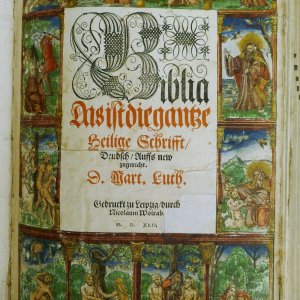 Biblia
Das ist die gantze
Heilige Schrifft/
Deudsch/ Auffs new
zugericht.
D. Mart. Luth.
Gedruckt zu Leipzig/ durch
Nicolaum Wolrab.
M. D. XLII.